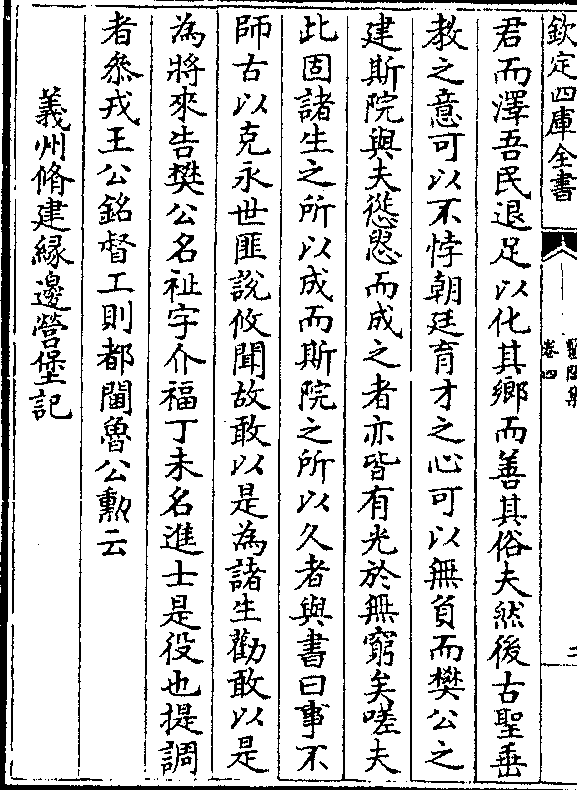 欽定四庫全書
卷四
君而澤吾民退足以化其鄉而善其俗夫然後古聖垂
教之意可以不悖朝廷育才之心可以無負而樊公之
建斯院與夫慫恿而成之者亦皆有光於無窮矣嗟夫
此固諸生之所以成而斯院之所以久者與書曰事不
師古以克永世匪說攸聞故敢以是為諸生勸敢以是
為將來告樊公名祉字介福丁未名進士是役也提調
者叅戎王公銘督工則都閫魯公勲云
義州脩建緣邊營堡記